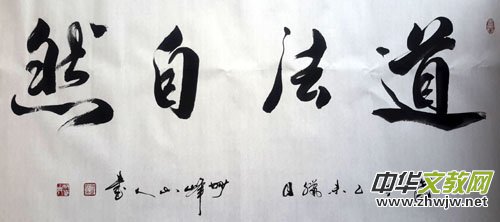 道法自然
乙未臘月 峰山人書
中华文教网
www.zhwjw.net